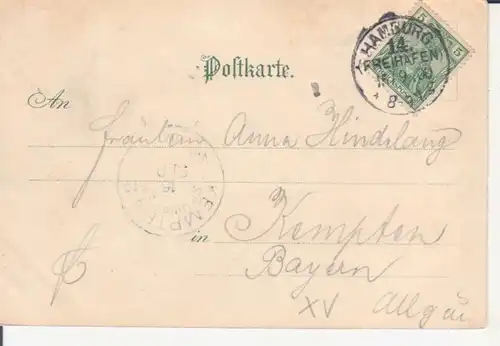 Postkarte.
HAMBURG
14.
FREIHAFEN
8-
5 5
An
Fräulein Anna Hindelang
KEMPTEN
in Kempten
Bayern
XV Allgäu